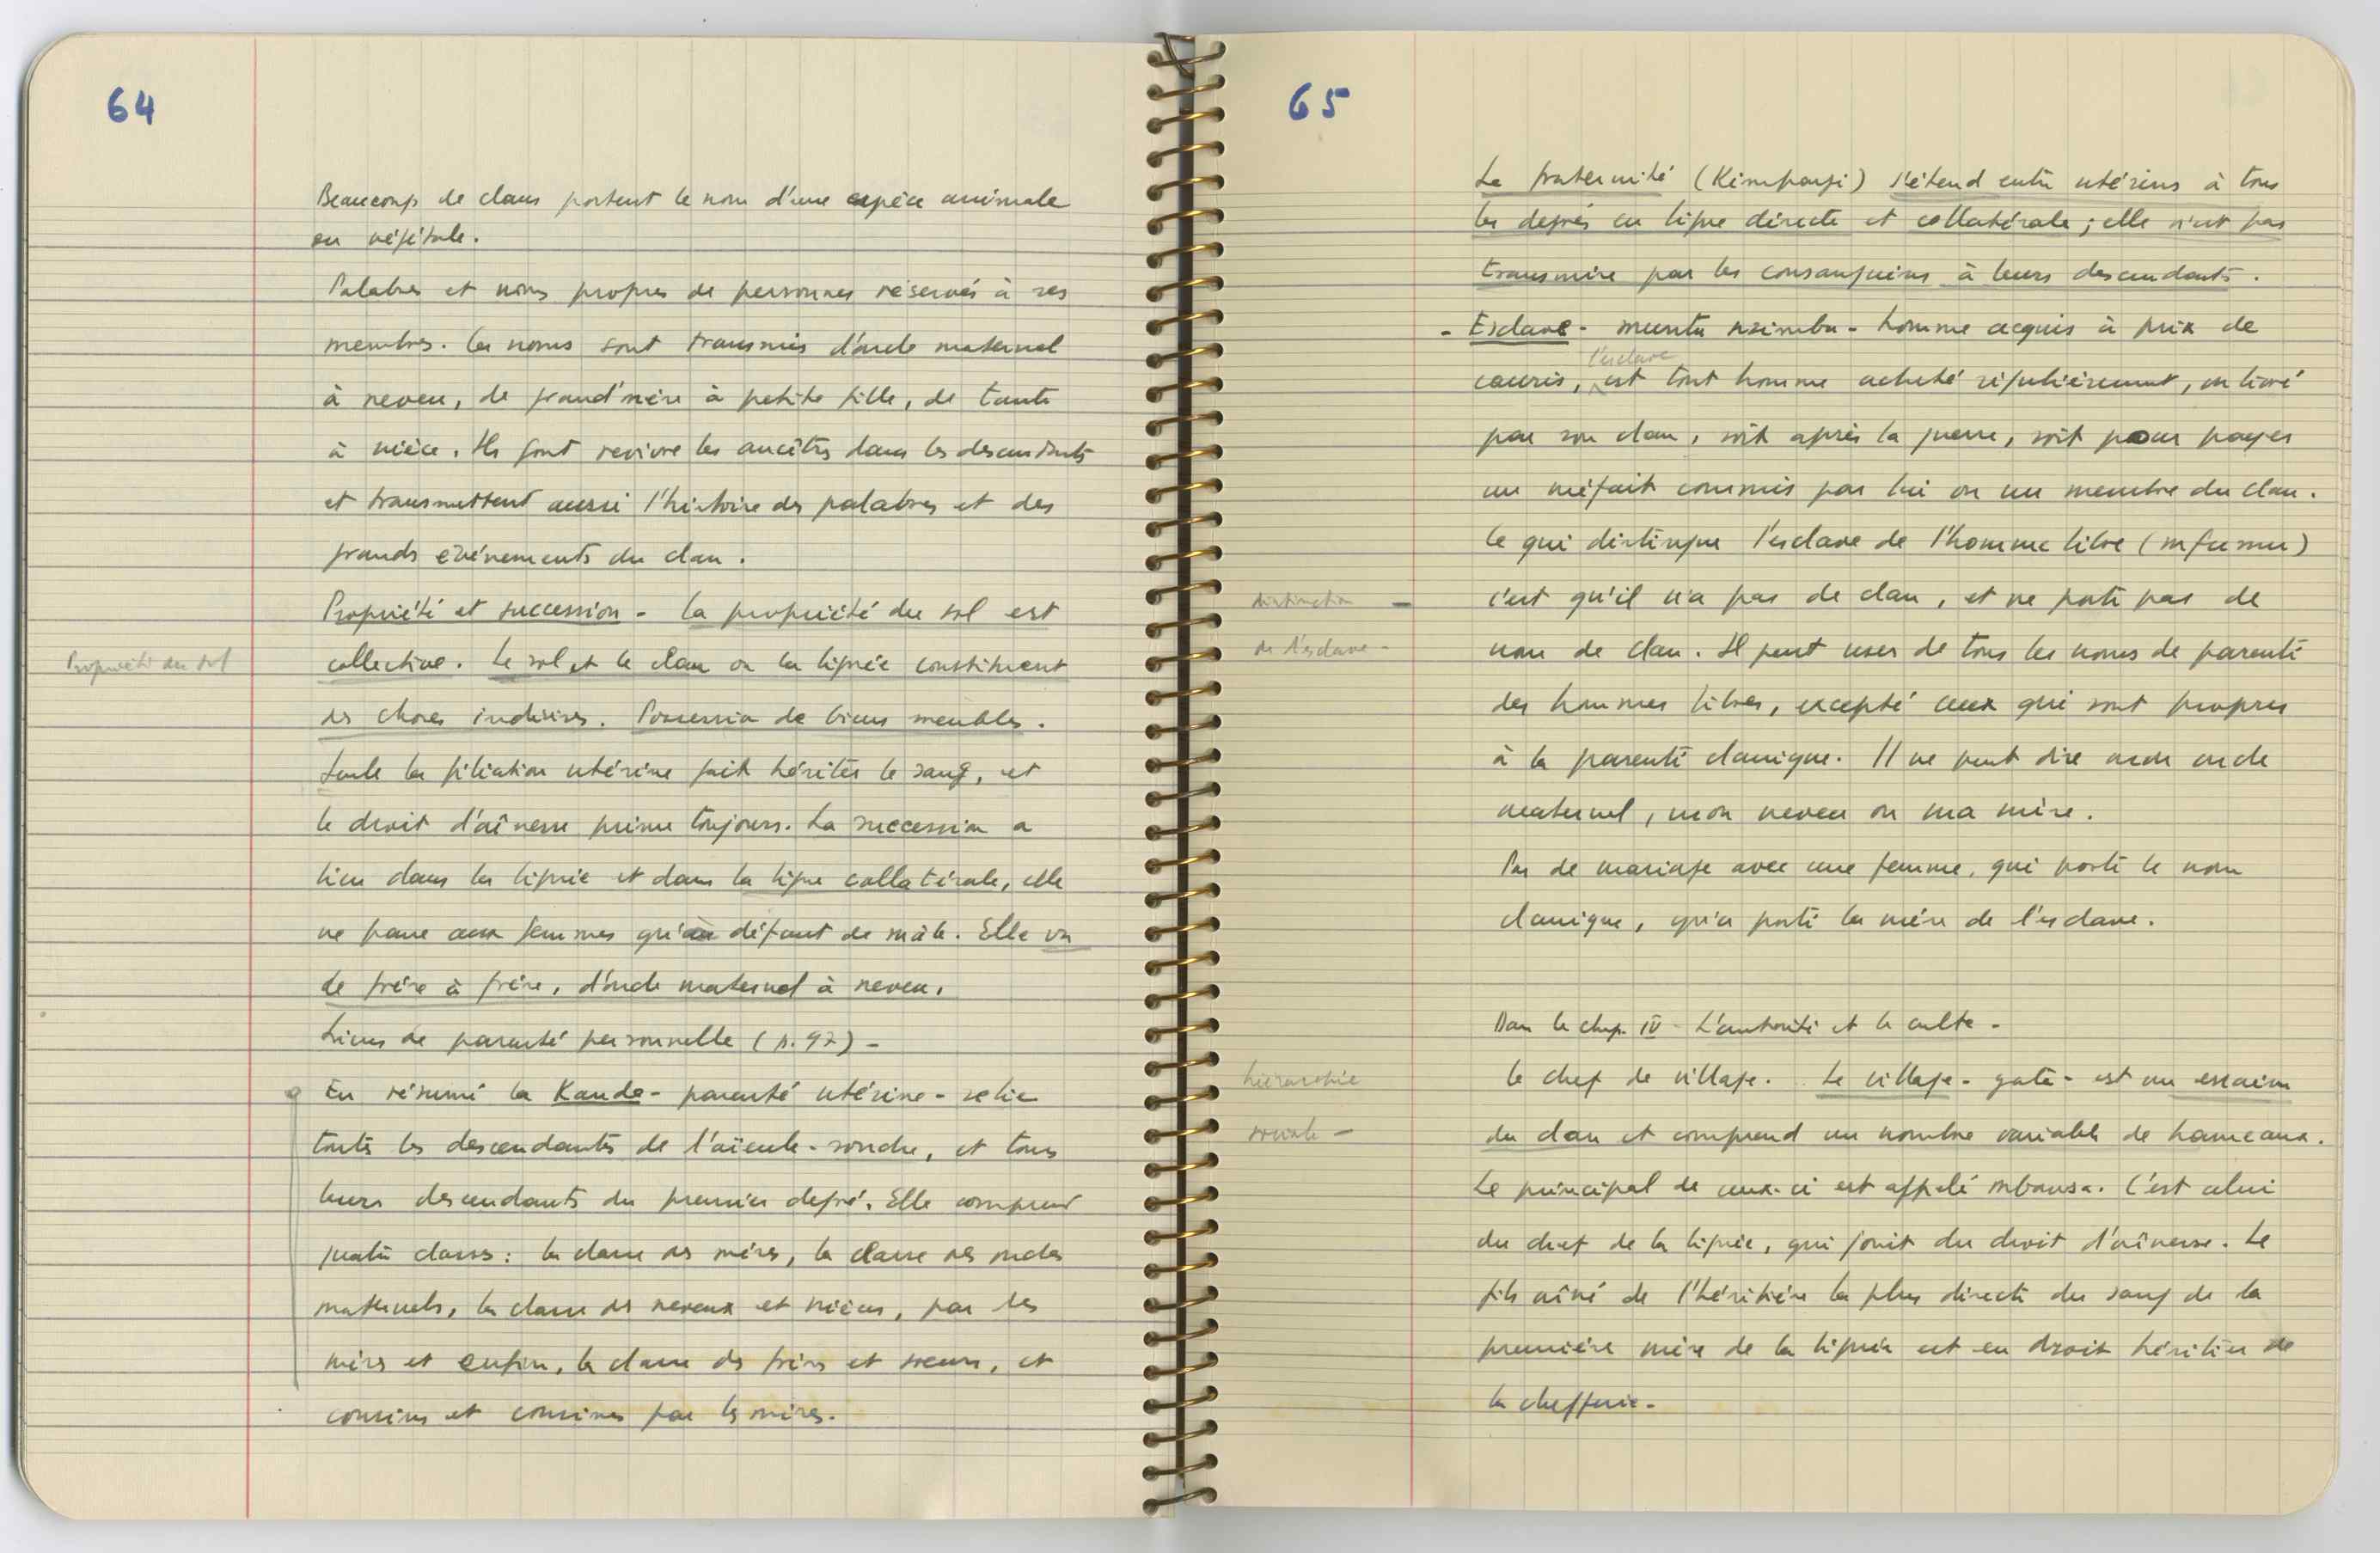 64
Beaucoup de clans portent le nom d'une espèce animale
ou végétale.
Palabres et noms propres de personnes réservés à ses
membres. Les noms sont transmis d'oncle maternel
à neveu, de grand'mère à petite fille, de tante
à nièce. Ils font revivre les ancêtres dans les descendants
et transmettent aussi l'histoire des palabres et des
grands événements du clan.
Propriété et succession - La propriété du sol est
Propriété du sol
collective. Le sol et le clan ou la lignée constituent
des choses indivises. Possession de biens meubles.
Seule la filiation utérine fait hériter le sang, et
le droit d'aînesse prime toujours. La succession a
lieu dans la lignée et dans la ligne collatérale, elle
ne passe aux femmes qu'au défaut de mâle. Elle va
de frère à frère, d'oncle maternel à neveu.
Liens de parenté personnelle (p. 97) -
En résumé la Kanda - parenté utérine - relie
toutes les descendantes de l'aïeule-souche, et tous
leurs descendants du premier degré. Elle comprend
quatre classes : la classe des mères, la classe des oncles
maternels, la classe des neveux et nièces, par les
mères et enfin, la classe des frères et soeurs, et
cousins et cousines par les mères.
65
La fraternité (Kimpangi) s'étend entre utérins à tous
les degrés en ligne directe et collatérale ; elle n'est pas
transmise par les consanguins à leurs descendants.
- Esclave - muntu nzimbu - homme acquis à prix de
l'esclave
cauris, est tout homme acheté régulièrement, ou livré
par son clan, soit après la guerre, soit pour payer
un méfait commis par lui ou un membre du clan.
Ce qui distingue l'esclave de l'homme libre (mfumu)
distinction -
c'est qu'il n'a pas de clan, et ne porte pas de
de l'esclave -
nom de clan. Il peut user de tous les noms de parenté
des hommes libres, excepté ceux qui sont propres
à la parenté clanique. Il ne peut dire mon oncle
maternel, mon neveu ou ma mère.
Pas de mariage avec une femme, qui porte le nom
clanique, qu'a porté la mère de l'esclave.
Dans le chap. IV - L'autorité et le culte -
hiérarchie
Le chef de village. Le village - gata - est un essaim
sociale -
du clan et comprend un nombre variable de hameaux.
Le principal de ceux-ci est appelé mbanza. C'est celui
du chef de la lignée, qui jouit du droit d'aînesse. Le
fils aîné de l'héritière la plus directe du sang de la
première mère de la lignée est en droit héritier de
la chefferie -